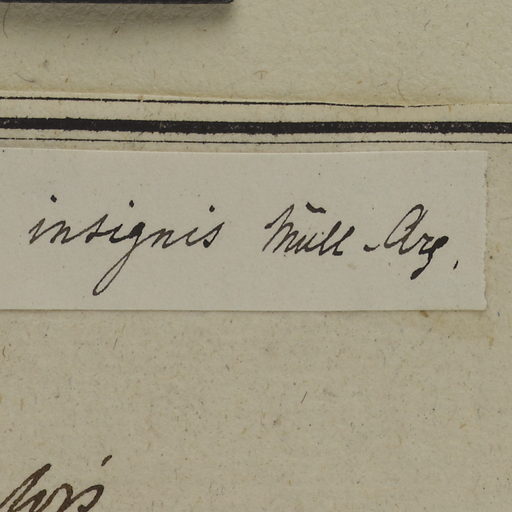 insignis Müll-Arg.